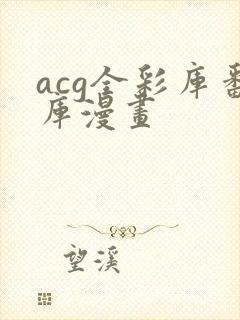 acg全彩库番
库漫畫
望溪